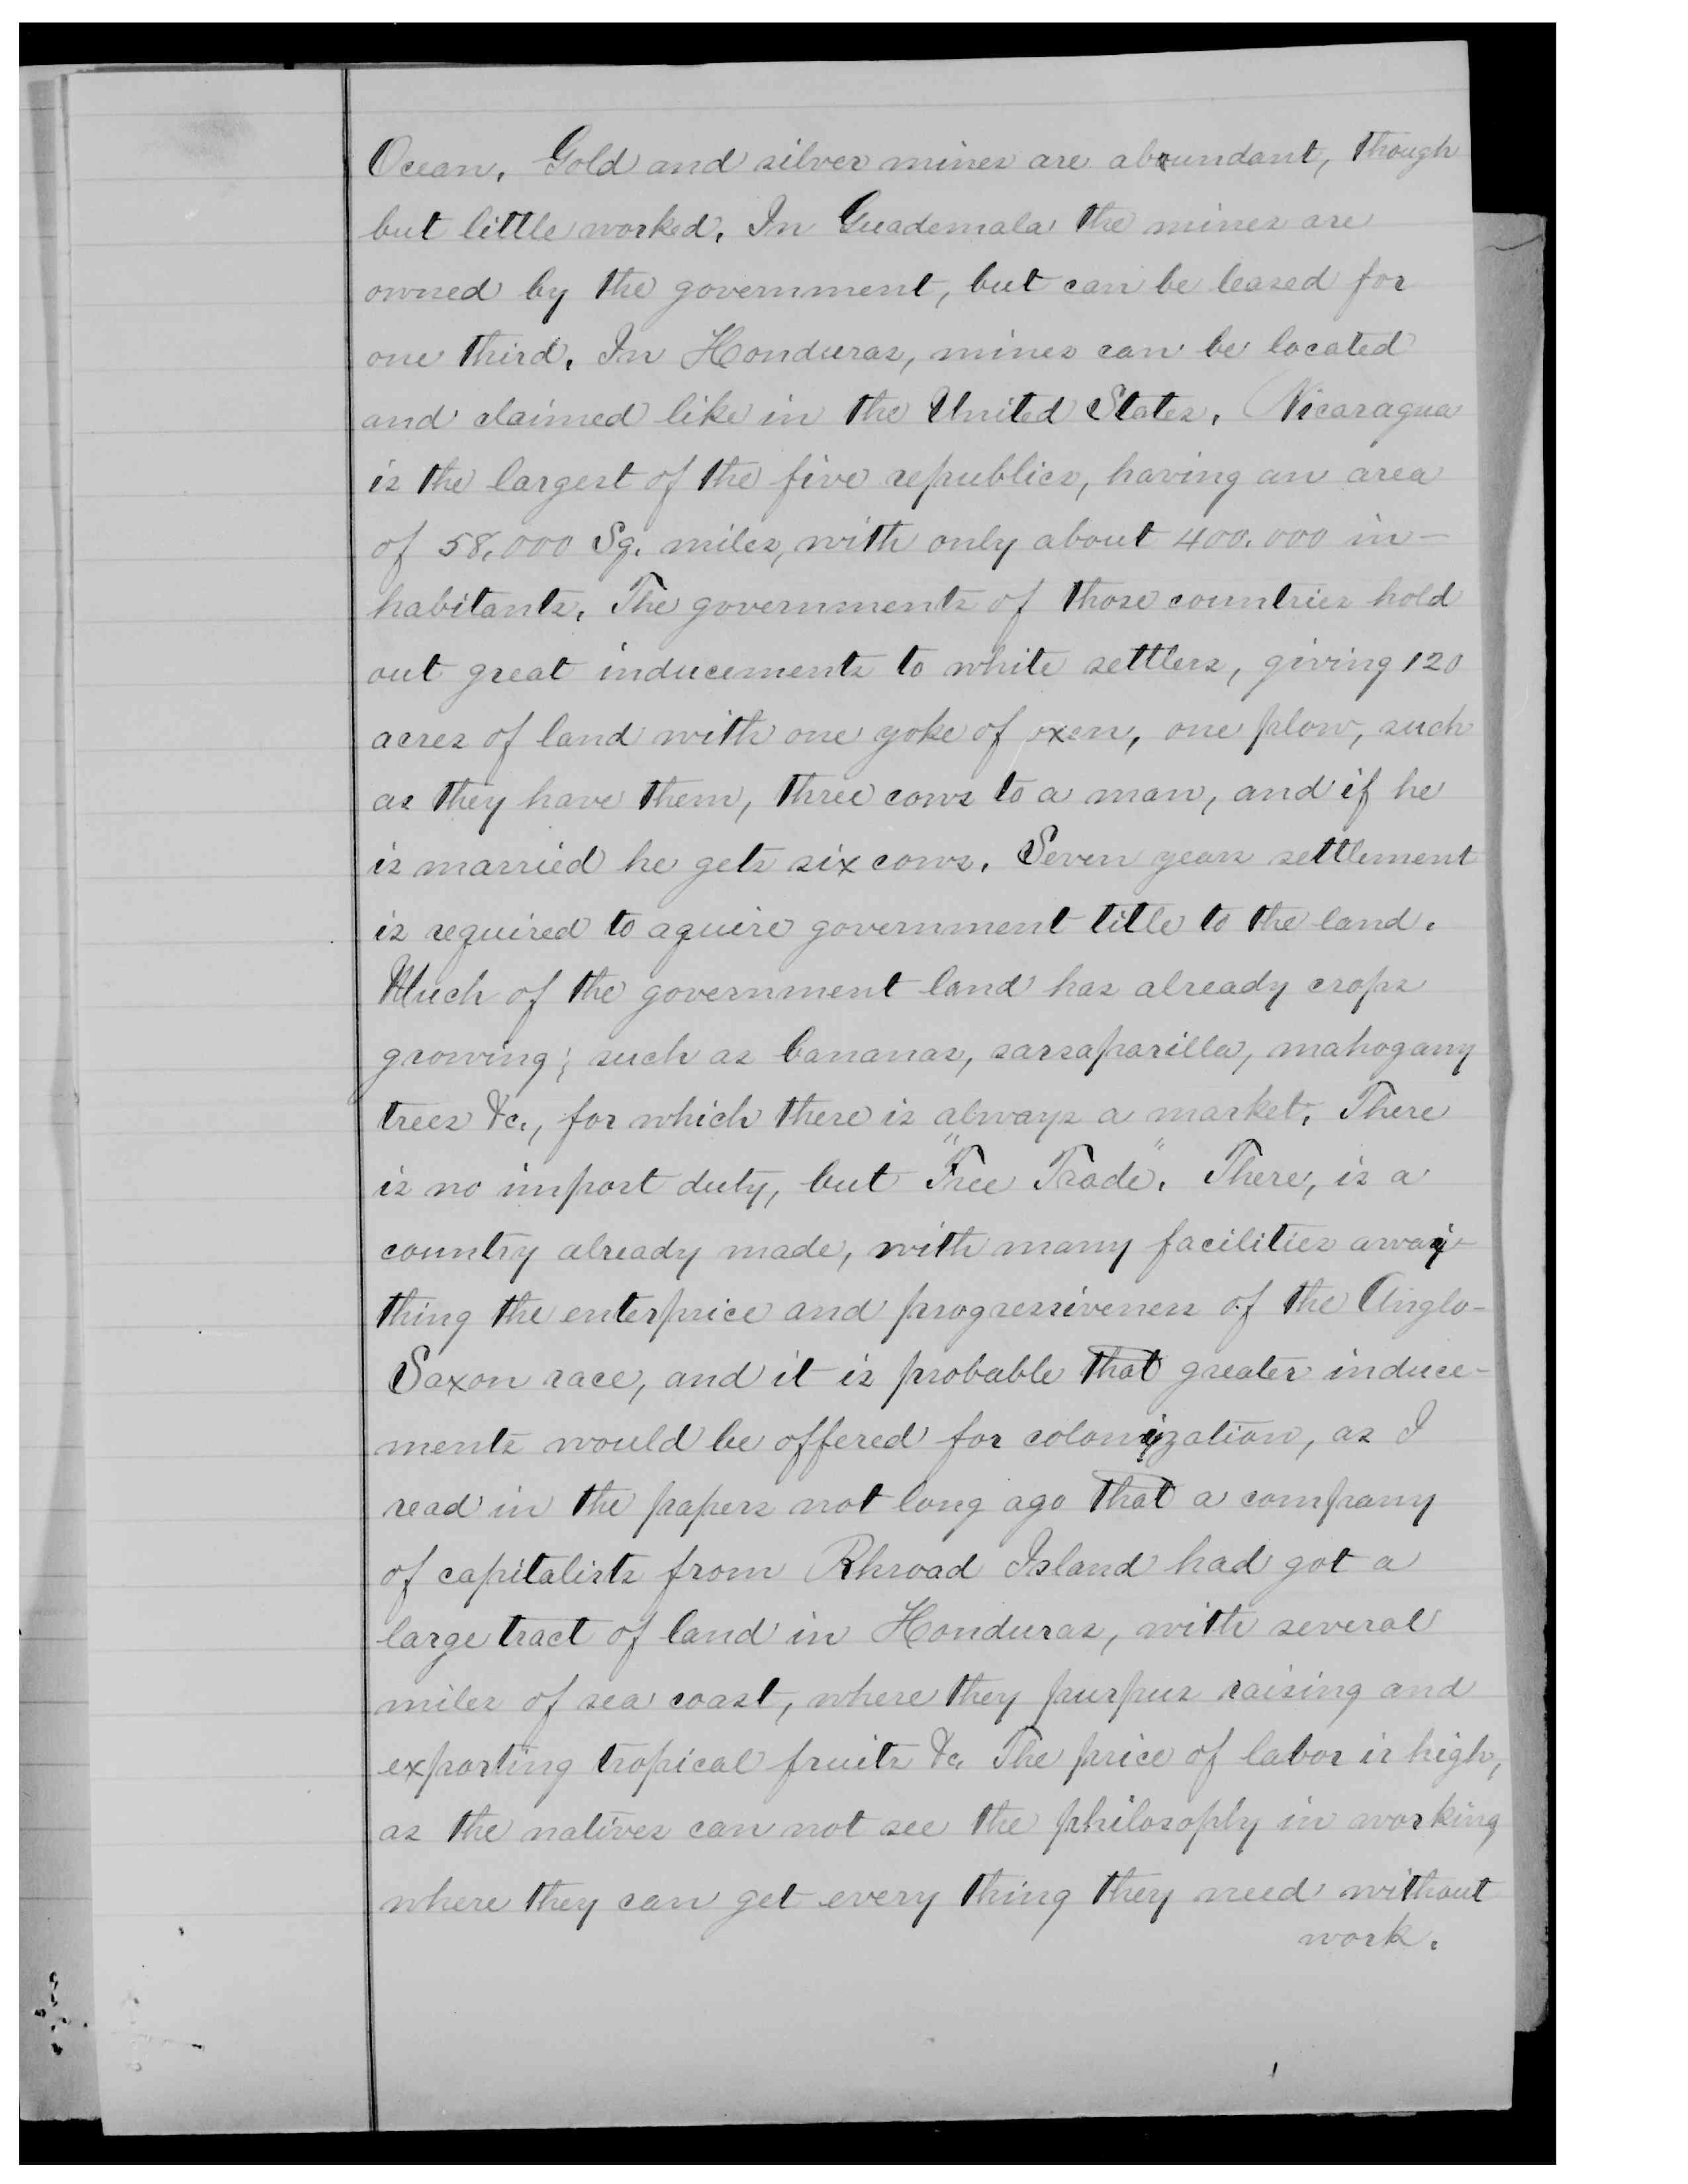 Ocean. Gold and silver mines are aboundant, though
but little worked. In Guademala the mines are
owned by the government, but can be leased for
one third. In Honduras, mines can be located
and claimed like in the United States. Nicaragua
is the largest of the five republics, having an area
of 58.000 Sq. miles, with only about 400.000 in-
habitants. The governments of those countries hold
out great inducements to white settlers, giving 120
acres of land with one yoke of oxen, one plow, such
as they have them, three cows to a man, and if he
is married he gets six cows. Seven years settlement
is required to aquire government title to the land.
Much of the government land has already crops
growing; such as bananas, sarsaparilla, mahogany
trees &c., for which there is always a market. There
is no import duty, but "Free Trade". There, is a
country already made, with many facilities awai-
thing the enterprice and progressiveness of the Anglo-
Saxon race, and it is probable that greater induce-
ments would be offered for colonization, as I
read in the papers not long ago that a company
of capitalists from Rhroad Island had got a
large tract of land in Honduras, with several
miles of sea coast, where they purpus raising and
exporting tropical fruits &c. The price of labor is high,
as the natives can not see the philosophy in working
where they can get every thing they need without
work.